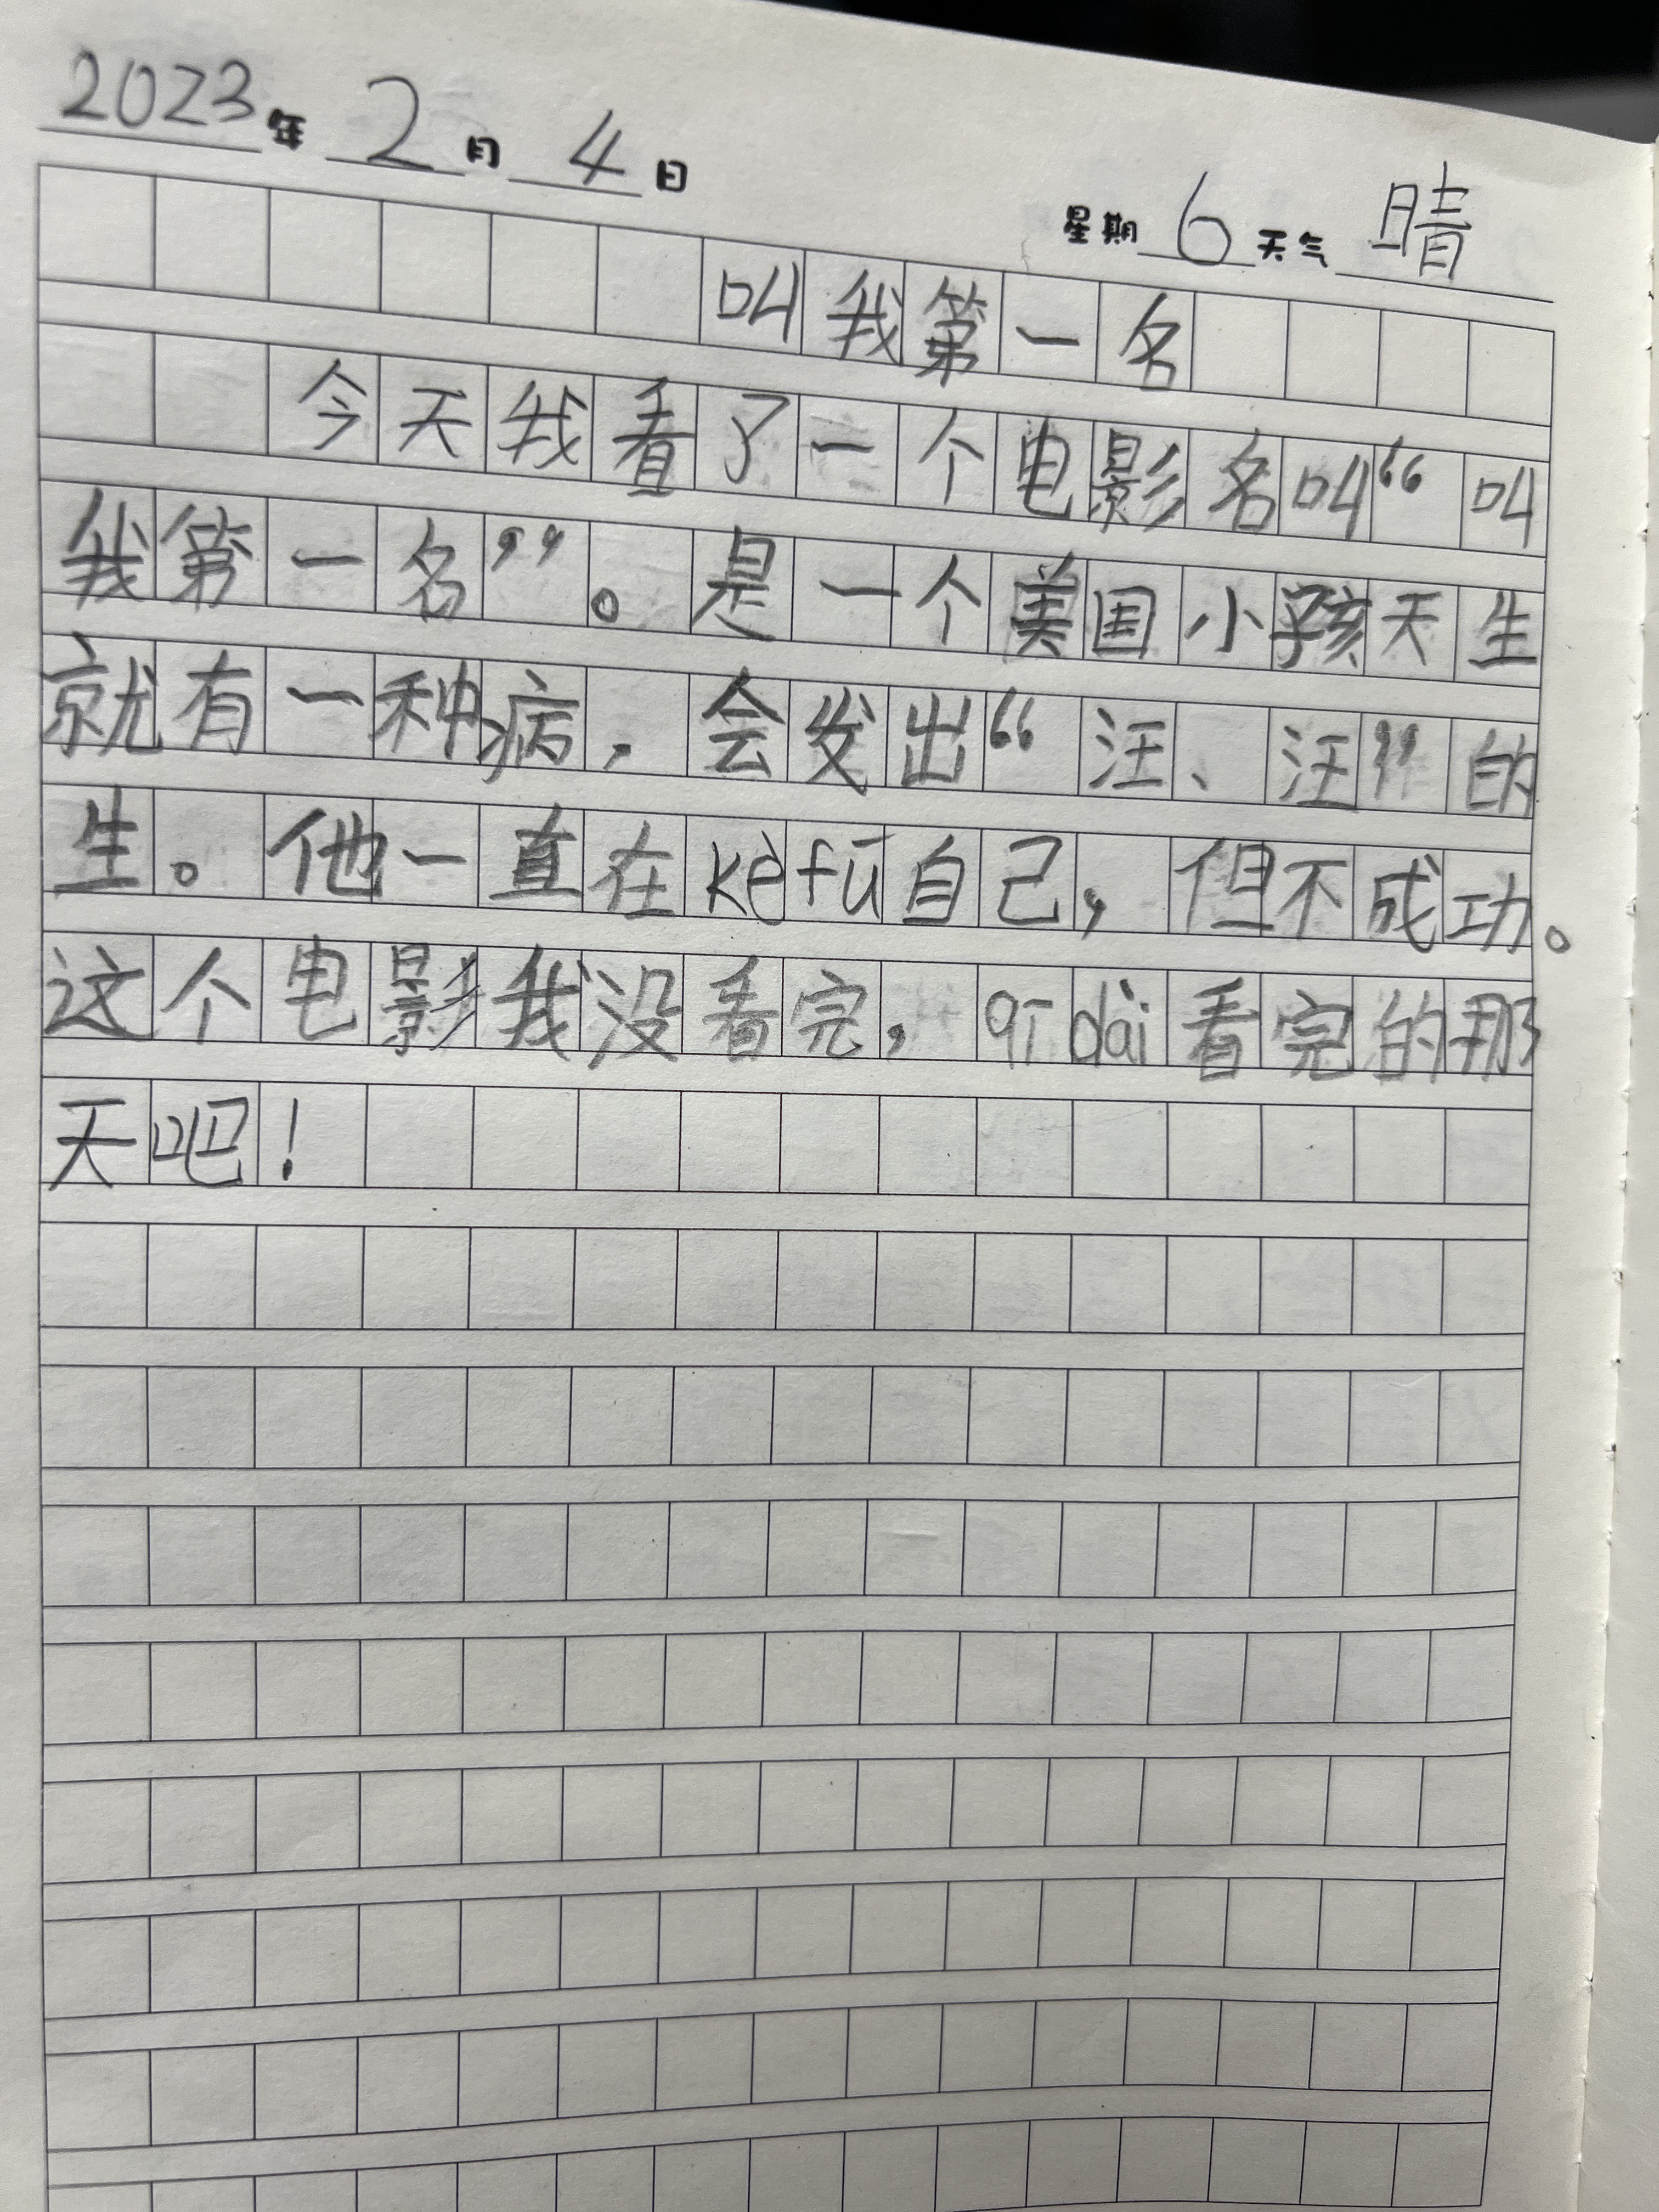 2023年2月4日
星期6天气晴
叫我第一名
今天我看了一个电影名叫“叫
我第一名”。是一个美国小孩天生
就有一种病，会发出“汪、汪”的
生。他一直在kèfū自己，但不成功。
这个电影我没看完，qīdài看完的那
天吧！